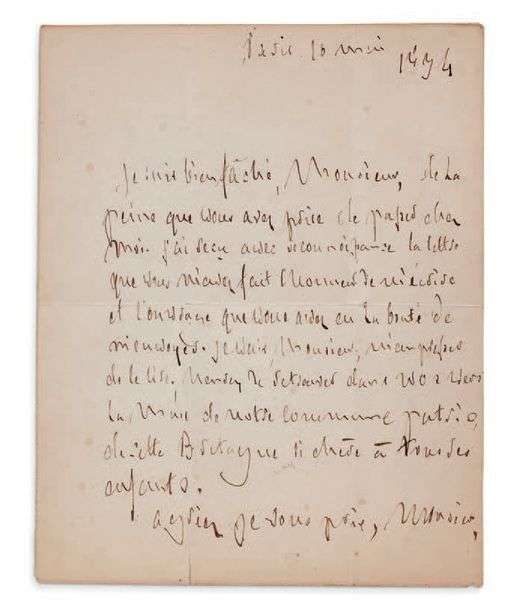 Paris mai
Je suis bien fâché, Monsieur, de la
peine que vous avez prise de passer chez
moi. j'ai reçu avec reconnoissance la lettre
que vous m'avez fait l'honneur de m'écrire
et l'ouvrage que vous avez eu la bonté de
m'envoyer. je vais, Monsieur, m'empresser
de le lire, heureux de retrouver dans vos vers
la Muse de notre commune patrie,
de cette Bretagne si chère à tous ses
enfants.
agréez je vous prie, Monsieur,